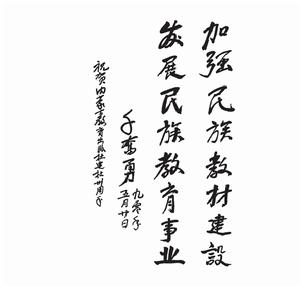 加强民族教材建設
发展民族教育事业
千奮勇
九零年
五月廿日
祝贺内蒙古教育出版社建社卅周年